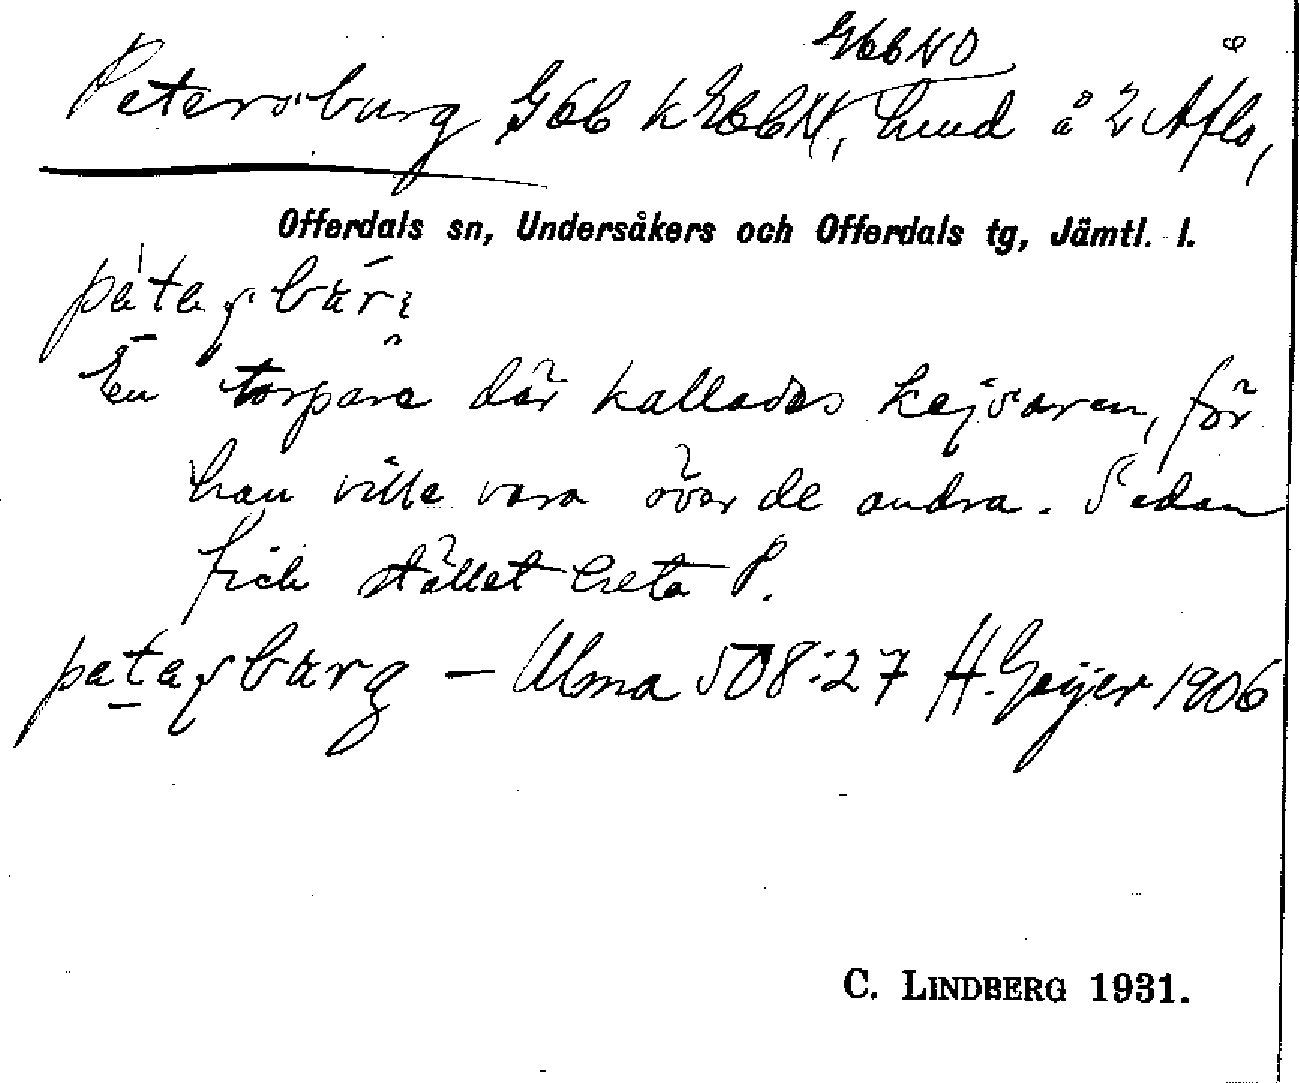 GbbNO
Petersburg Gbb k EbbN, hund å 2 Åflo,
Offerdals sn, Undersåkers och Offerdals tg, Jämtl. l.
En torpare där kallades kejsaren, för
han ville vara över de andra. Sedan
fick stället heta P.
— Ulma 508:27 H. Geijer 1906
C. LINDBERG 1931.